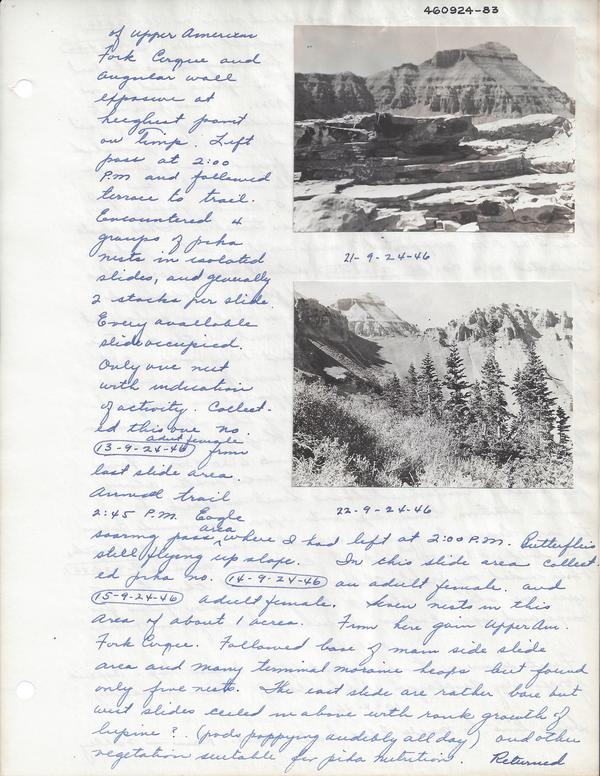 460924-83
of upper American
Fork Cirque and
angular wall
exposure at
heighest point
on Timp. Left
pass at 2:00
P.M and followed
terrace to trail.
Encountered 4
groups of pika
nests in isolated
slides, and generally
2 stacks per slide.
Every available
slide occupied.
Only one nest
with indication
of activity. Collect-
ed this one no.
adult female
13-9-24-46 from
last slide area.
Arrived trail
2:45 P.M. Eagle
area
soaring pass where I had left at 2:00 P.M. Butterflies
still flying up slope. In this slide area collect-
ed pika no. 14-9-24-46 an adult female. and
15-9-24-46 adult female. Seven nests in this
area of about 1 acrea. From here gain Upper Am.
Fork Cirque. Followed base of main side slide
area and many terminal moraine heaps but found
only five nests. The east slide are rather bare but
west slides in above with rank growth of
lupine? (pods popping audibly all day) and other
vegetation suitable for pika nutrition. Returned
21-9-24-46
22-9-24-46